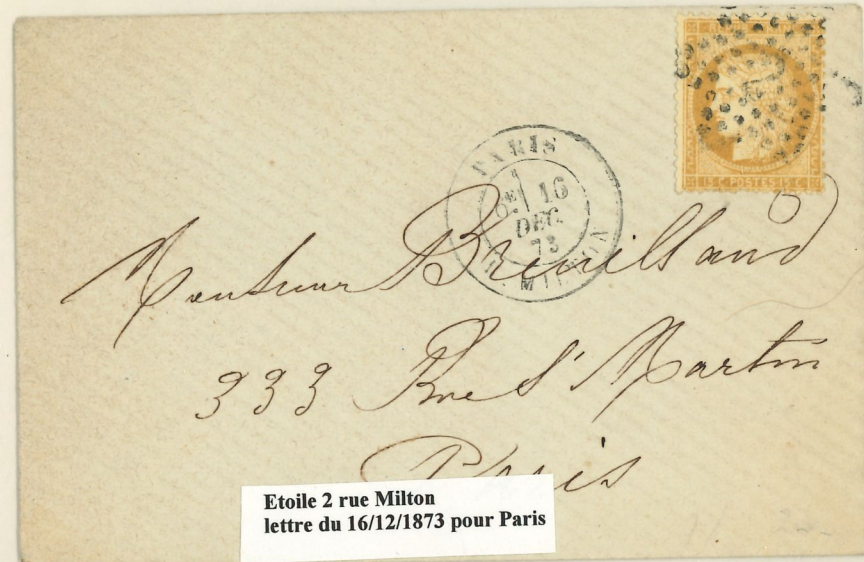 15 C. POSTES 15 C.
PARIS
6E 16
DEC.
73
R. MILTON
Monsieur Breuilland
333 Rue St Martin
Paris
Etoile 2 rue Milton
lettre du 16/12/1873 pour Paris